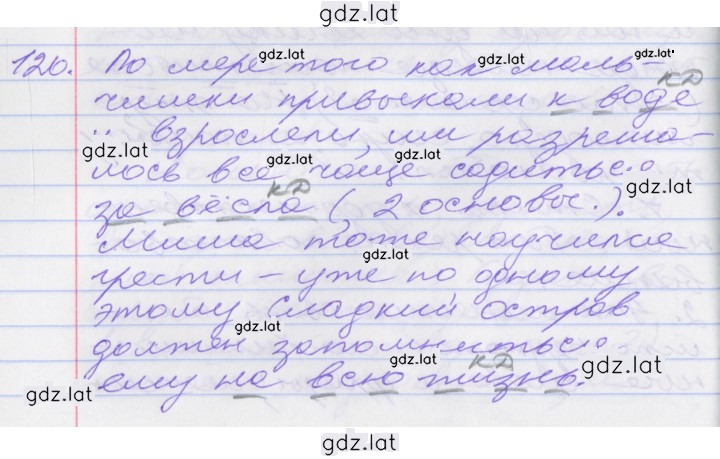 gdz.lat
120. По мере того как маль-
gdz.lat gdz.lat gdz.lat
КД
чишки привыкали к воде
и взрослели, им разреша-
gdz.lat gdz.lat gdz.lat
лось всё чаще садиться
КД gdz.lat
за вёсла ( 2 основы.).
Миша тоже научился
gdz.lat
грести – уже по одному
этому Сладкий остров
gdz.lat
должен запомниться
gdz.lat КД gdz.lat
ему на всю жизнь.
gdz.lat gdz.lat
gdz.lat